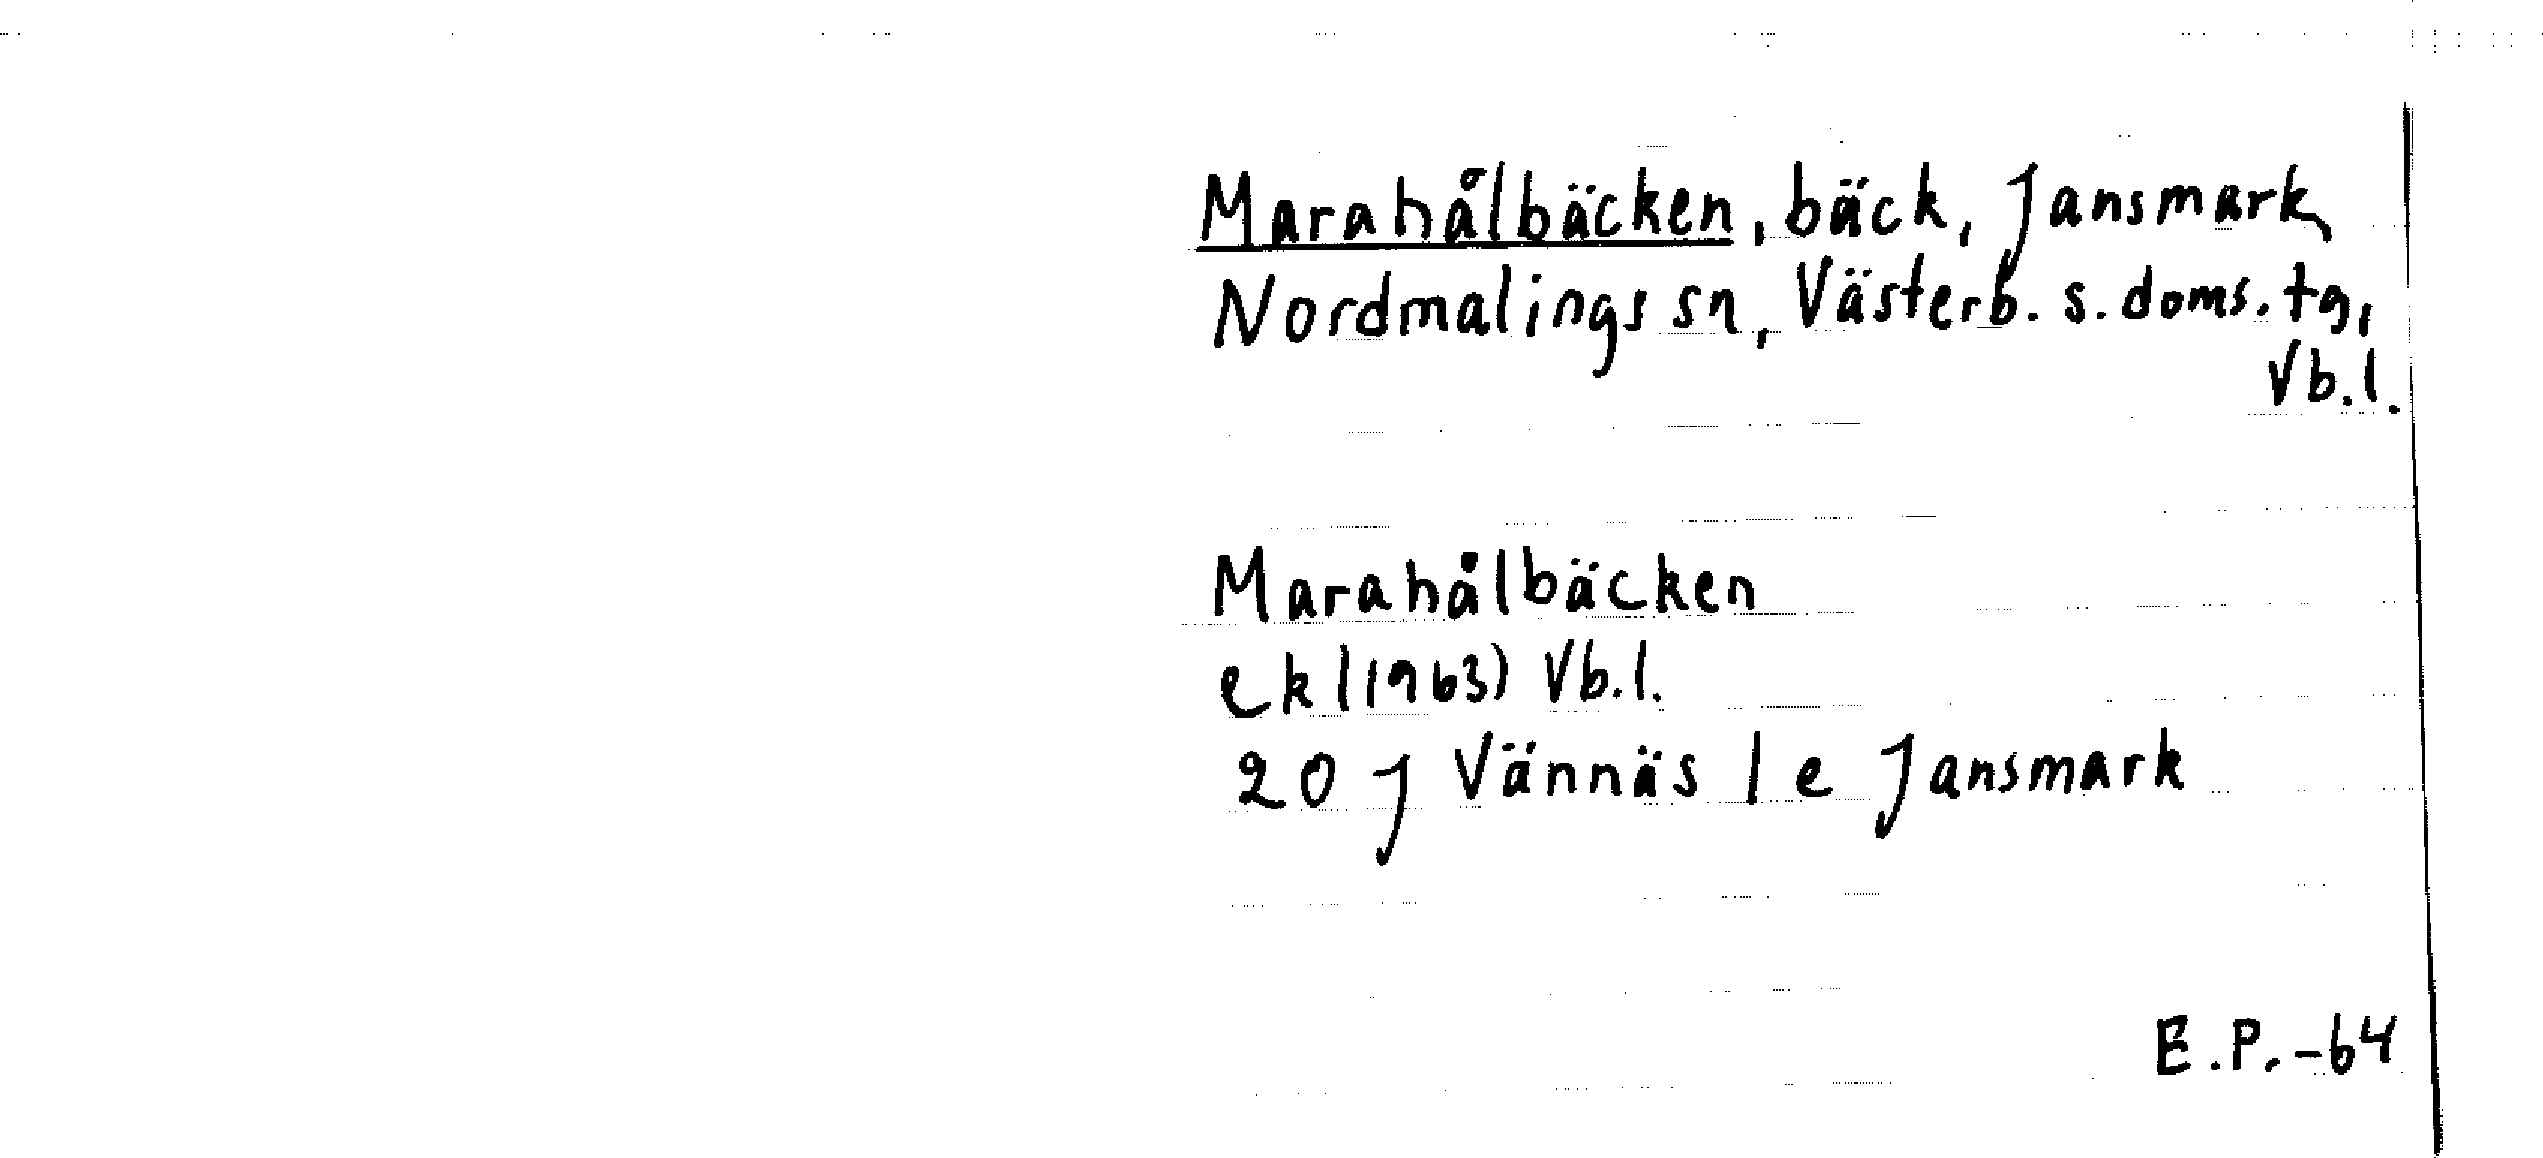 Marahålbäcken, bäck, Jansmark,
Nordmalings sn, Västerb. s. doms. tg,
Vb.l.
Marahålbäcken
ek (1963) Vb.l.
20 J Vännäs 1 e Jansmark
E.P.-64